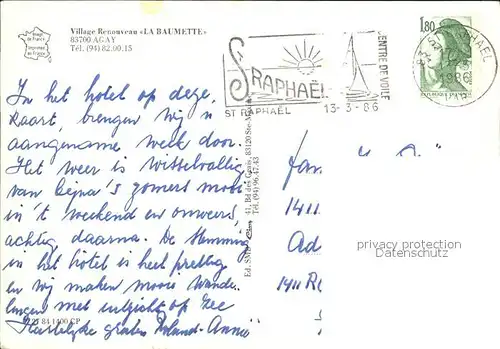 Village Renouveau «LA BAUMETTE»
83700 AGAY
Tél. (94) 82.00.15
Image de France
Imprimé en France
In het hotel op deze
kaart, brengen wij 'n
aangename week door.
Het weer is wisselvallig
van bijna 's zomers mooi
in 't weekend en onweers
achtig daarna. De stemming
in het hotel is heel prettig
en wij maken mooie wande
lingen met uitzicht op zee
Hartelijke groeten Roland-Annie
84 1400 CP
ST RAPHAËL
ST RAPHAËL
13-3-86
CENTRE DE VOILE
1,80
REPUBLIQUE FRANÇAISE
ST RAPHAEL
1986
41, Bd des 83120 Ste-
Tél. (94) 96.47.43
Fam.
1411
Ad
1411 R
privacy protection
Datenschutz